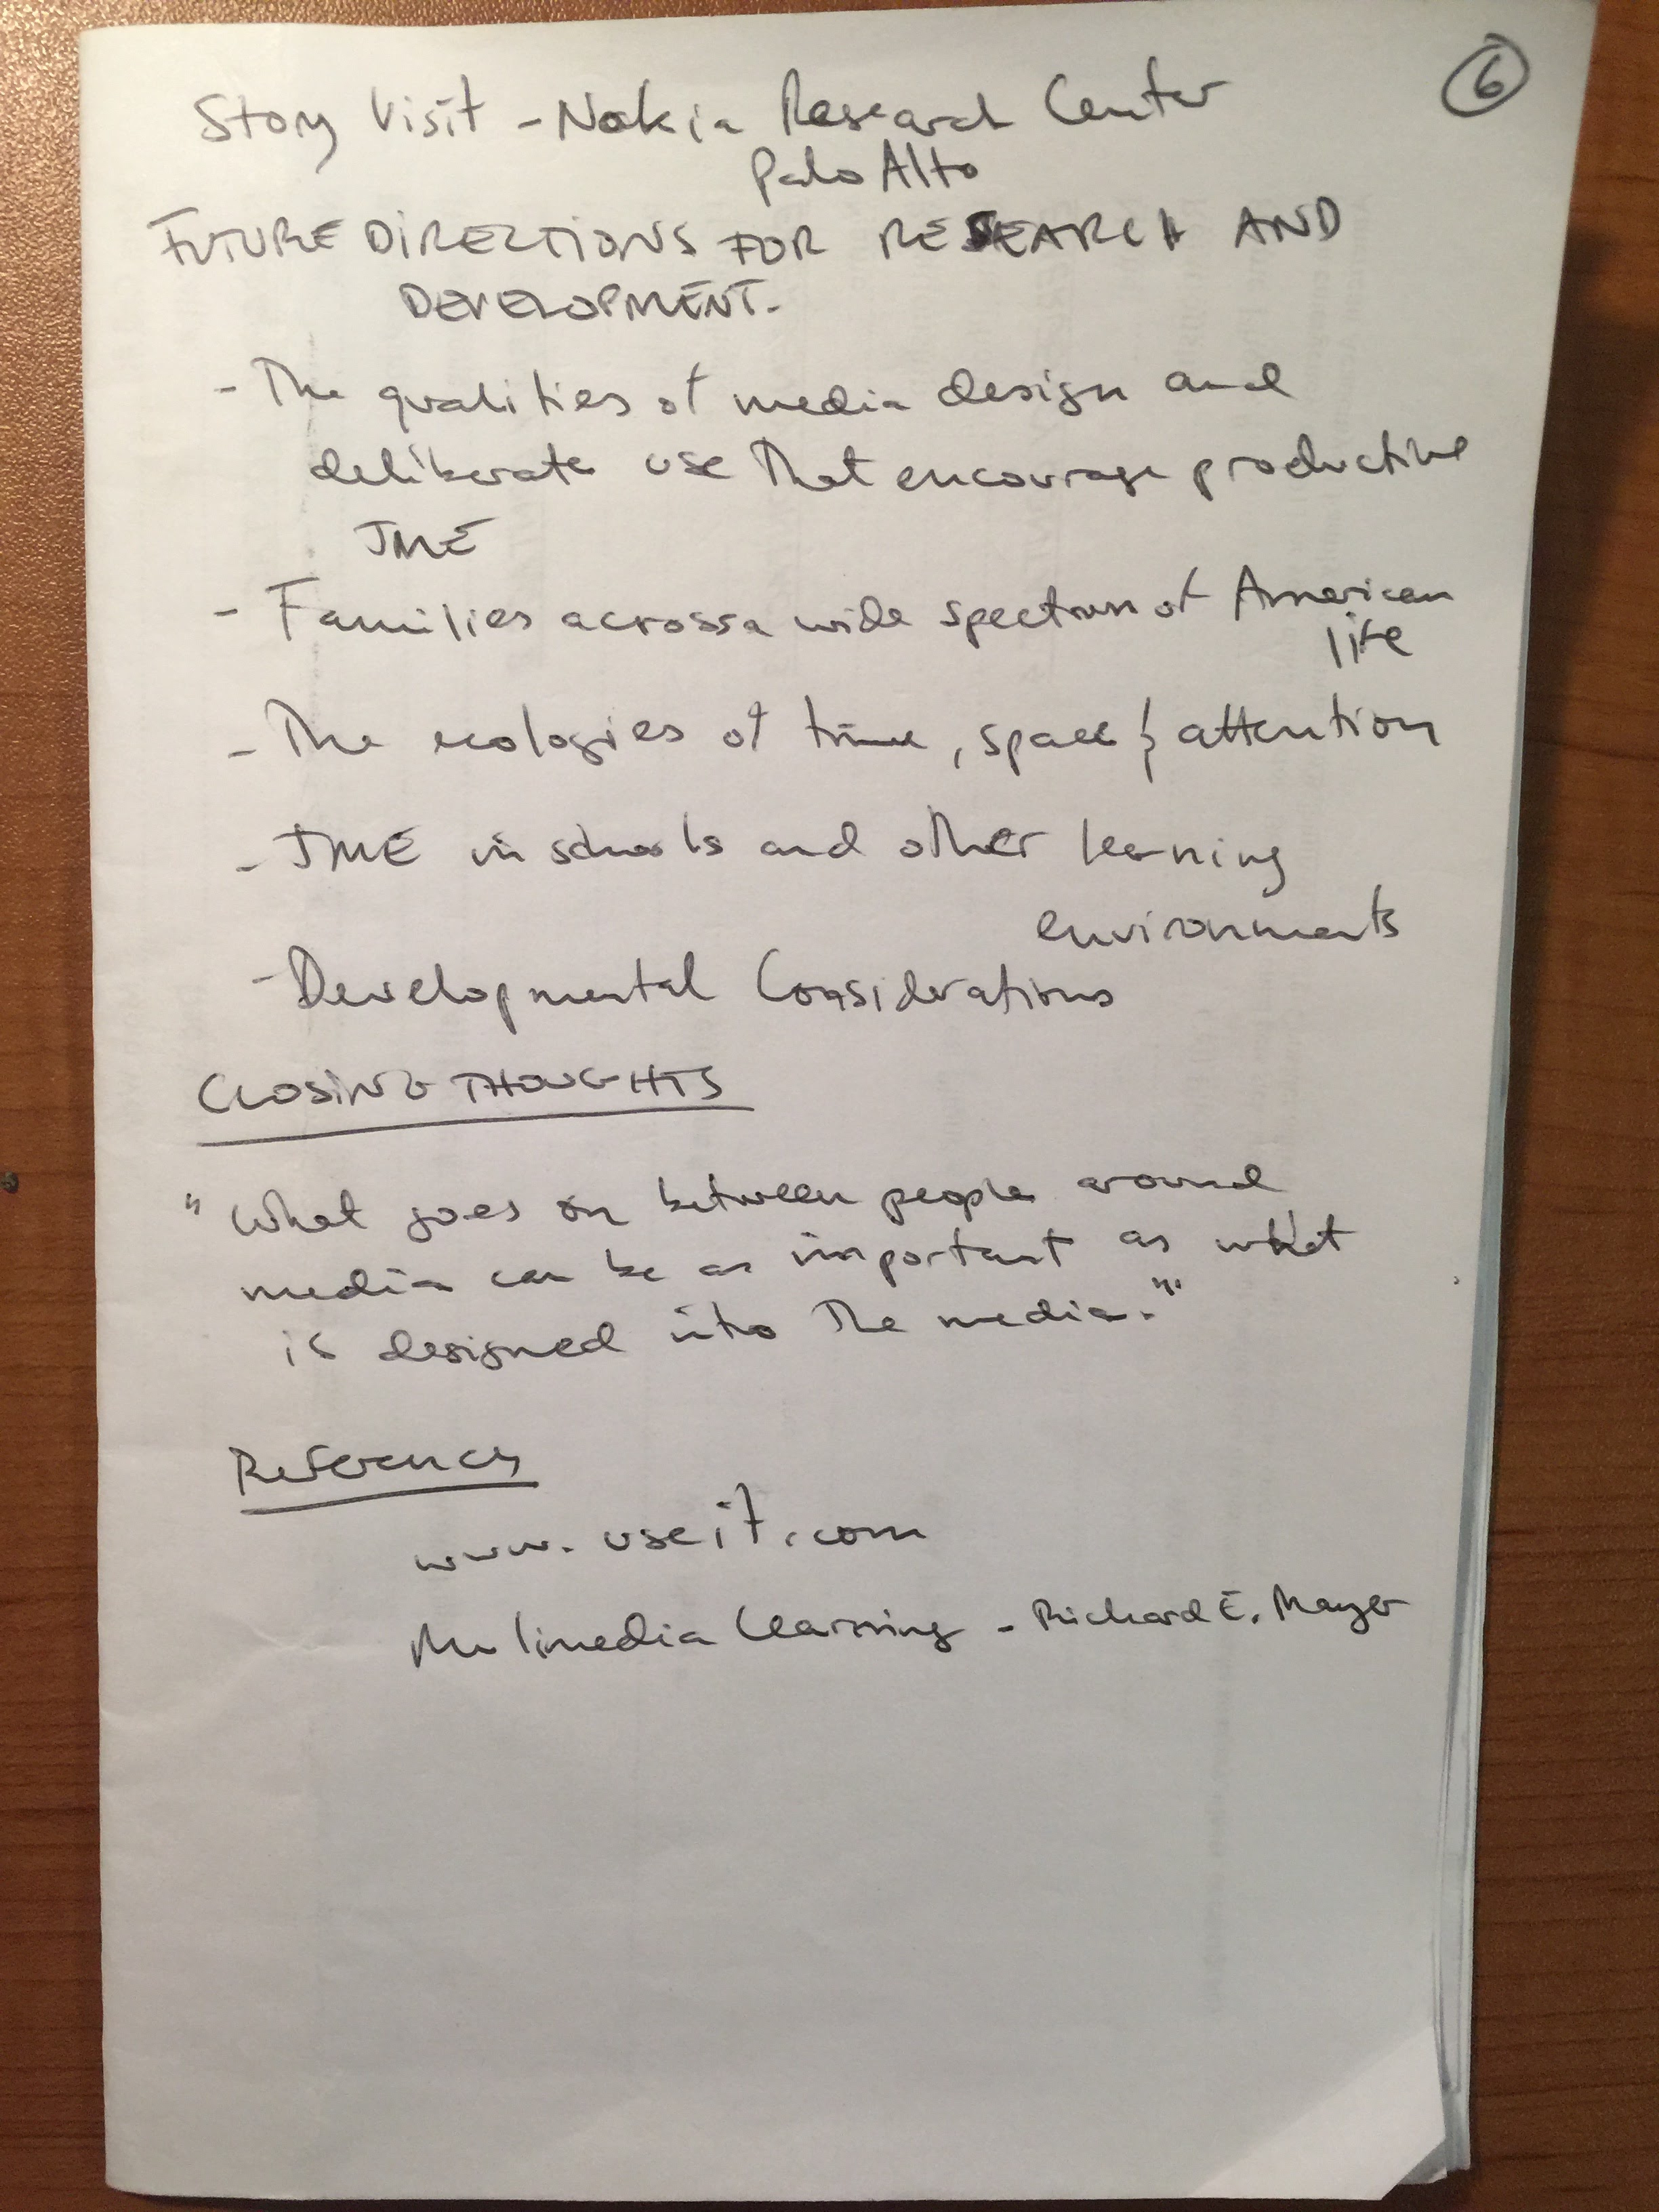 6
Story Visit - Nokia Research Center
Palo Alto
FUTURE DIRECTIONS FOR RESEARCH AND
DEVELOPMENT.
- The qualities of media design and
deliberate use that encourage productive
JME
- Families across a wide spectrum of American
life
- The ecologies of time, space & attention
- JME in schools and other learning
environments
- Developmental Considerations
CLOSING THOUGHTS
"What goes on between people around
media can be as important as what
is designed into the media."
References
www.useit.com
Mulimedia Learning - Richard E. Mayer